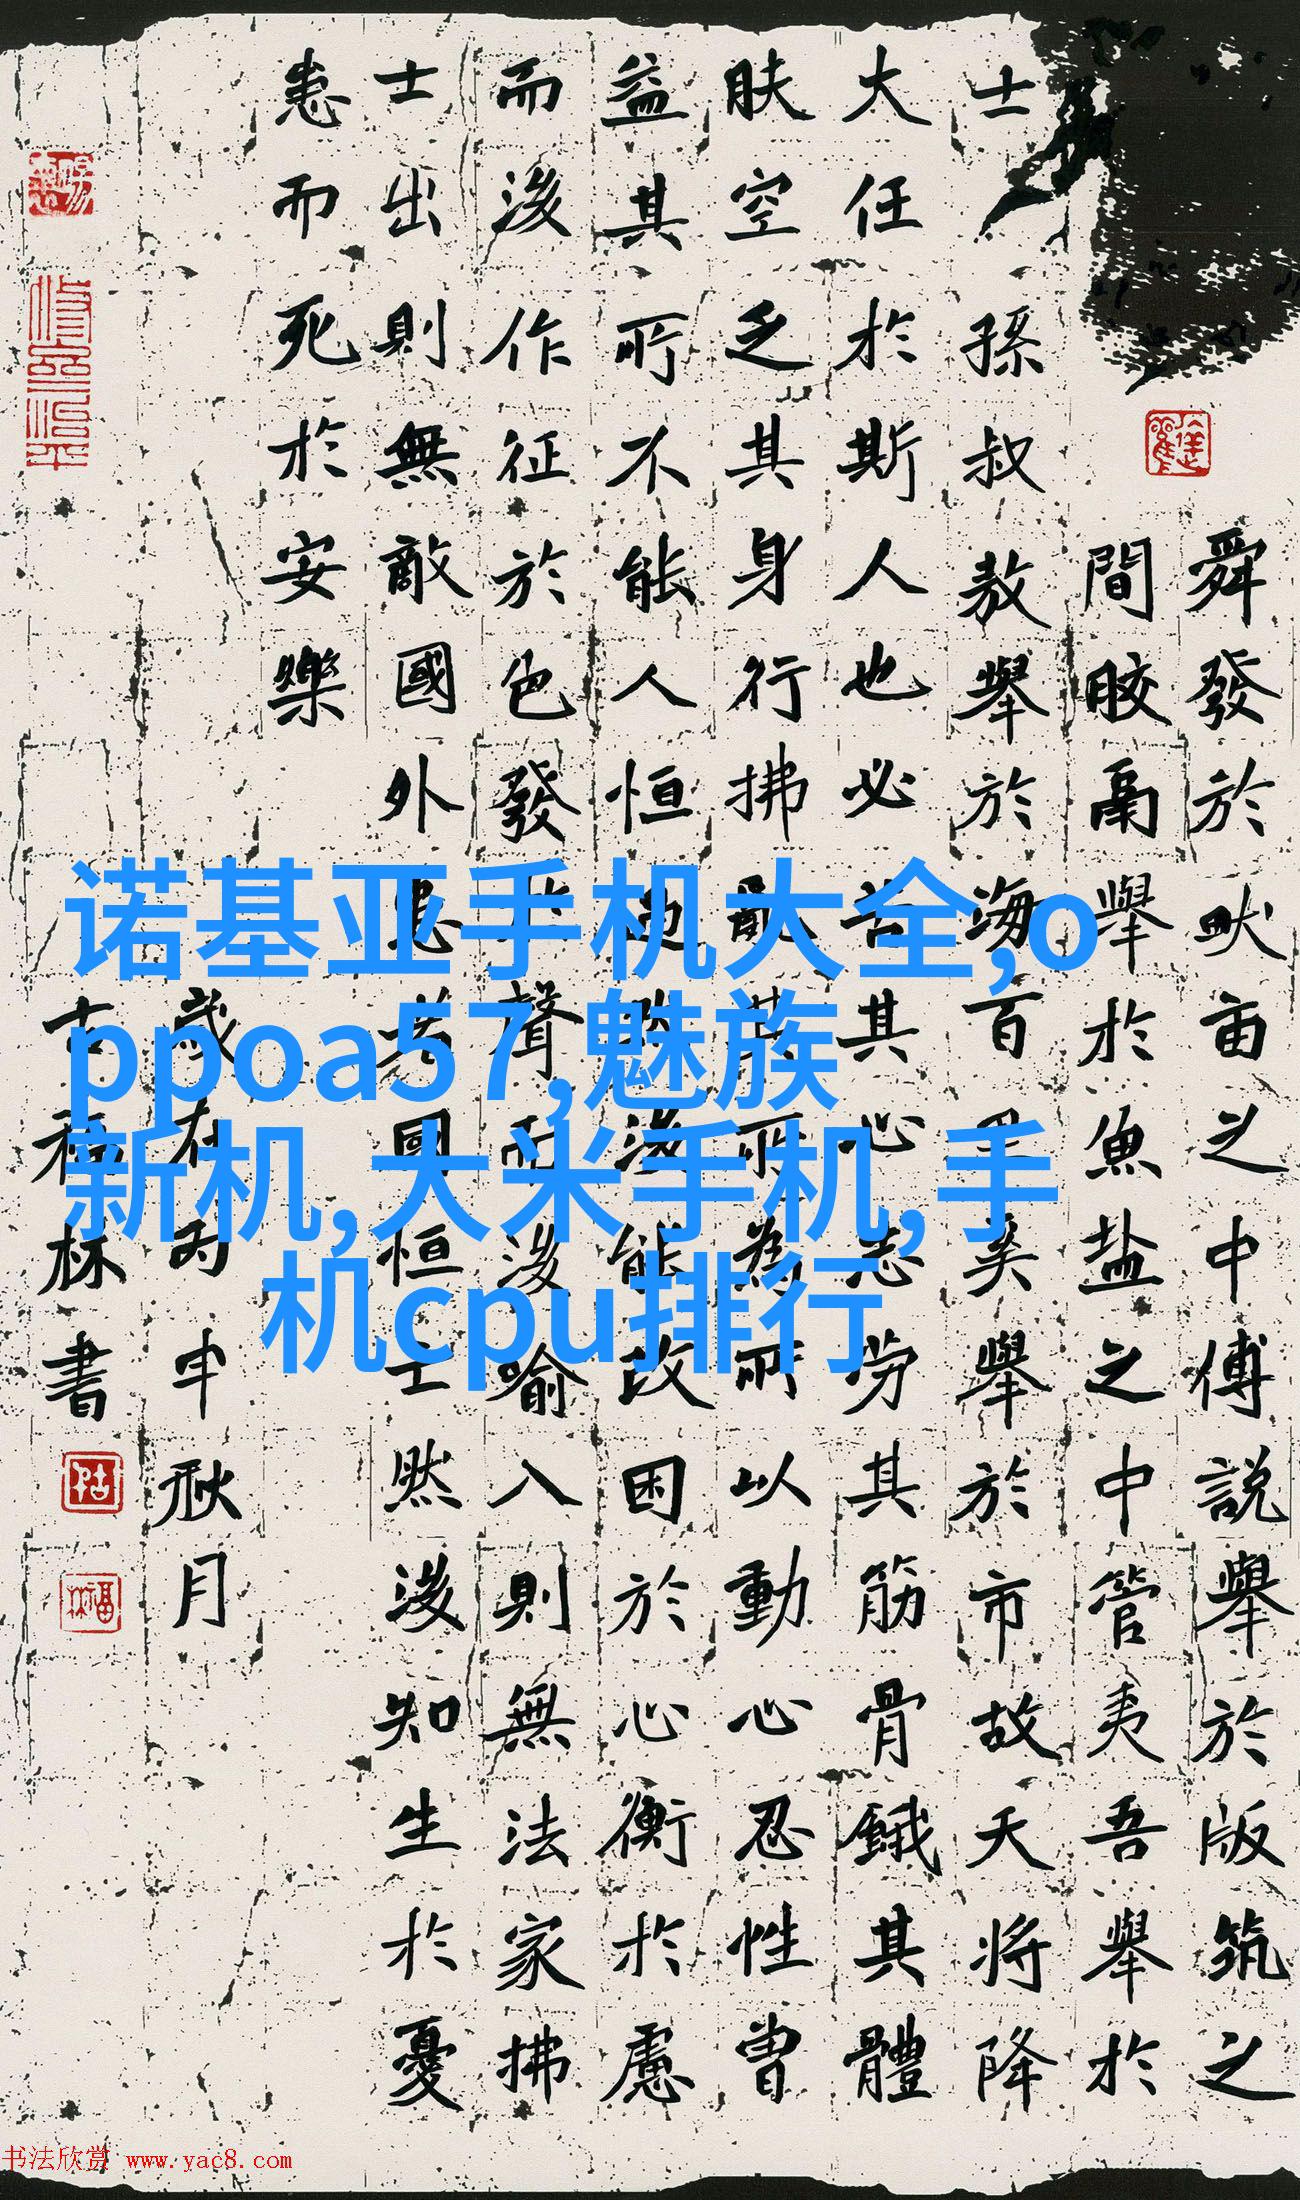 舜發於畎亩之中傅説舉於版筑之
間膠鬲舉於魚盐之中管夷吾舉於
士孫叔敖舉於海百里奚舉於市故天將降
大任於斯人也必苦其心志劳其筋骨餓其體
肤空乏其身行拂亂其所為所以動心忍性曾
益其所不能人恒過然後能改困於心衡於慮
而後作征於色發於聲而後喻入則無法家拂
士出則無敵國外患者國恒亡然後知生於憂
患而死於安樂
歲在丙申秋月
古福林書
诺基亚手机大全,o
ppoa57,魅族
新机,大米手机,手
机cpu排行
书法欣赏 www.yac8.com